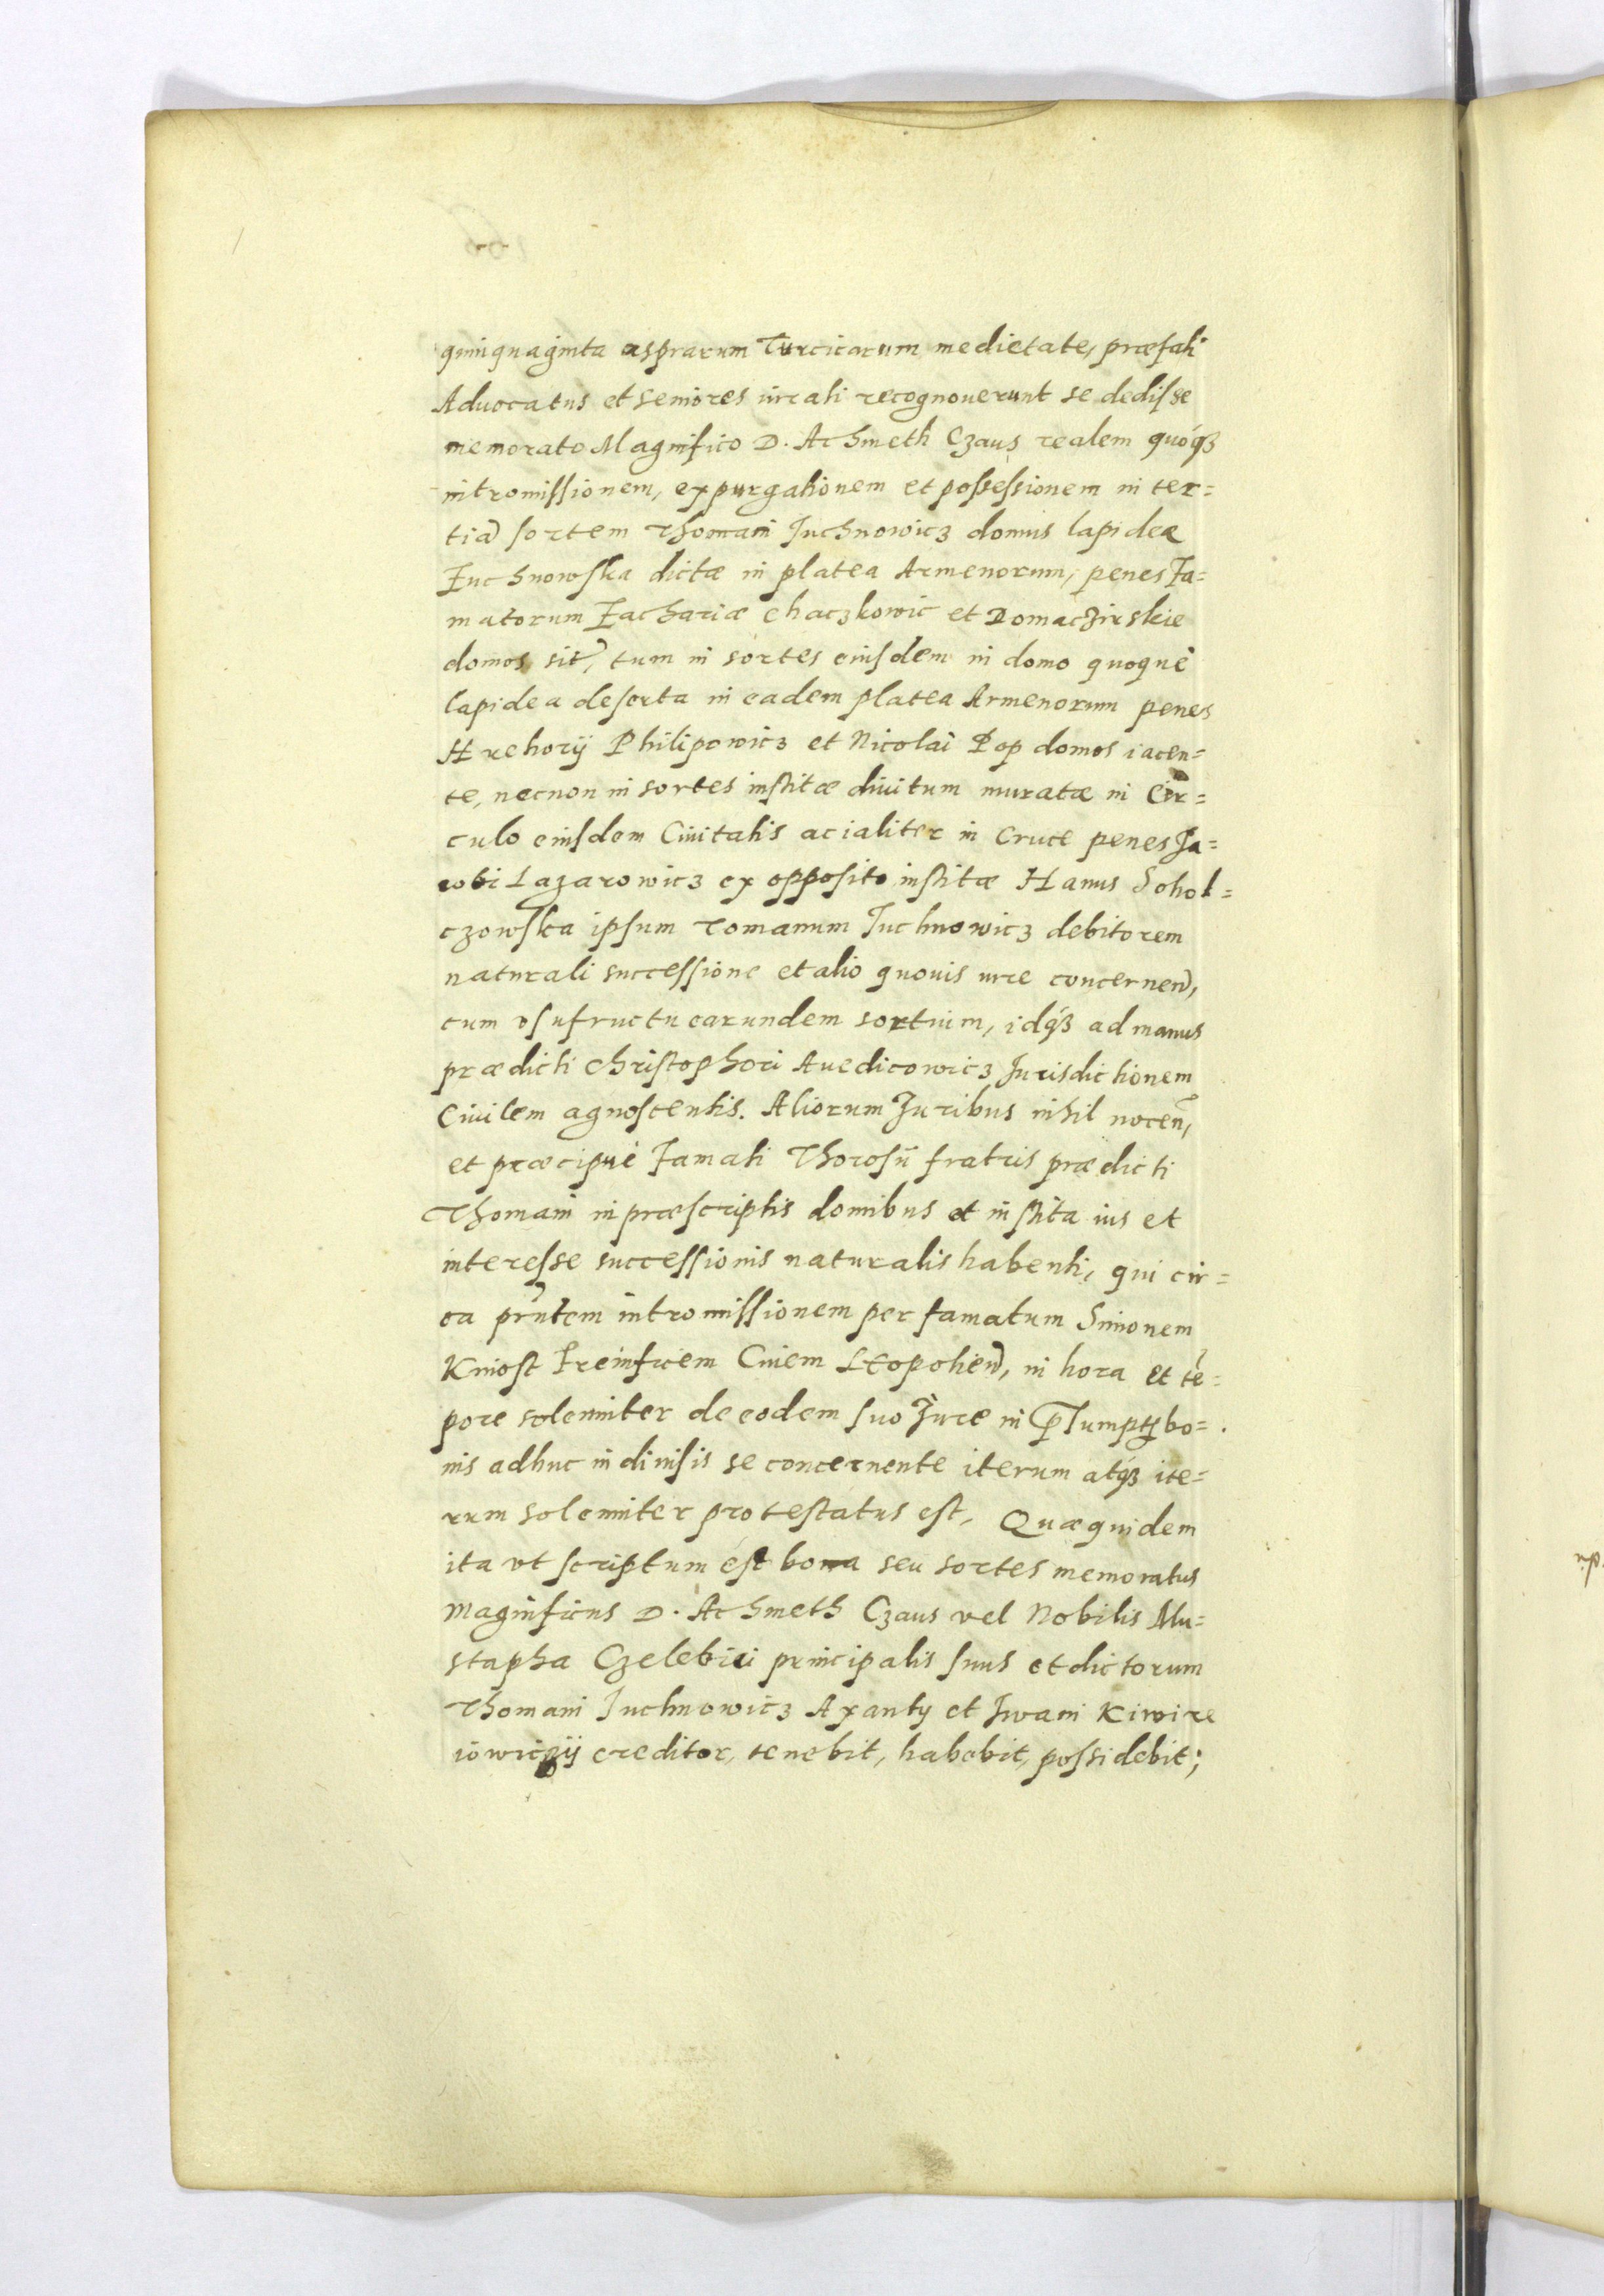 quinquaginta asprarum Turcicarum medietate, præfati
Advocatus et seniores iurati recognouerunt se dedisse
memorato Magnifico D. Achmeth Czaus realem quoqз
intromissionem, expurgationem et possessionem in ter=
tiã sortem Thomani Iuchnowicz domus lapideæ
Iuchnowska dictæ in platea Armenorum, penes Fa=
matorum Zachariæ Chaczkowic et Domaczirskie
domos sit̃, tum in sortes eiusdem in domo quoque
lapidea deserta in eadem platea Armenorum penes
Hrehorij Philipowicz et Nicolai Pop domos iacen=
te, necnon in sortes institæ diuitum muratæ in Cir=
culo eiusdem Ciuitatis acialiter in Cruce penes Ja=
cobi Lazarowicz ex opposito institæ Hanus Sohol=
czowska ipsum Tomanum Iuchnowicz debitorem
naturali successione et alio quouis iure concernen̄,
cum vsufructu earundem sortium, idqз ad manus
prædicti Christophori Auedicowicz Jurisdictionem
Ciuilem agnoscentis. Aliorum Juribus nihil nocen̄,
et præcipuè famati Thorosij fratris prædicti
Thomani in præscriptis domibus et instita ius et
interesse successionis naturalis habenti, qui cir=
ca pr̃ntem intromissionem per famatum Simonem
Kniost Freinficem Ciuem Leopolien̄, in hora et tẽ=
pore solenniter de eodem suo Jure in p̄sumptis bo=
nis adhuc indiuisis se concernente iterum atqз ite=
rum solenniter protestatus est. Quæquidem
ita vt scriptum est bona seu sortes memoratus
Magnificus D. Achmeth Czaus vel Nobilis Mu=
stapha Czelebiei principalis suus et dictorum
Thomani Iuchnowicz Axanty et Iwani Kiwire
iowiczij creditor, tenebit, habebit, possidebit;